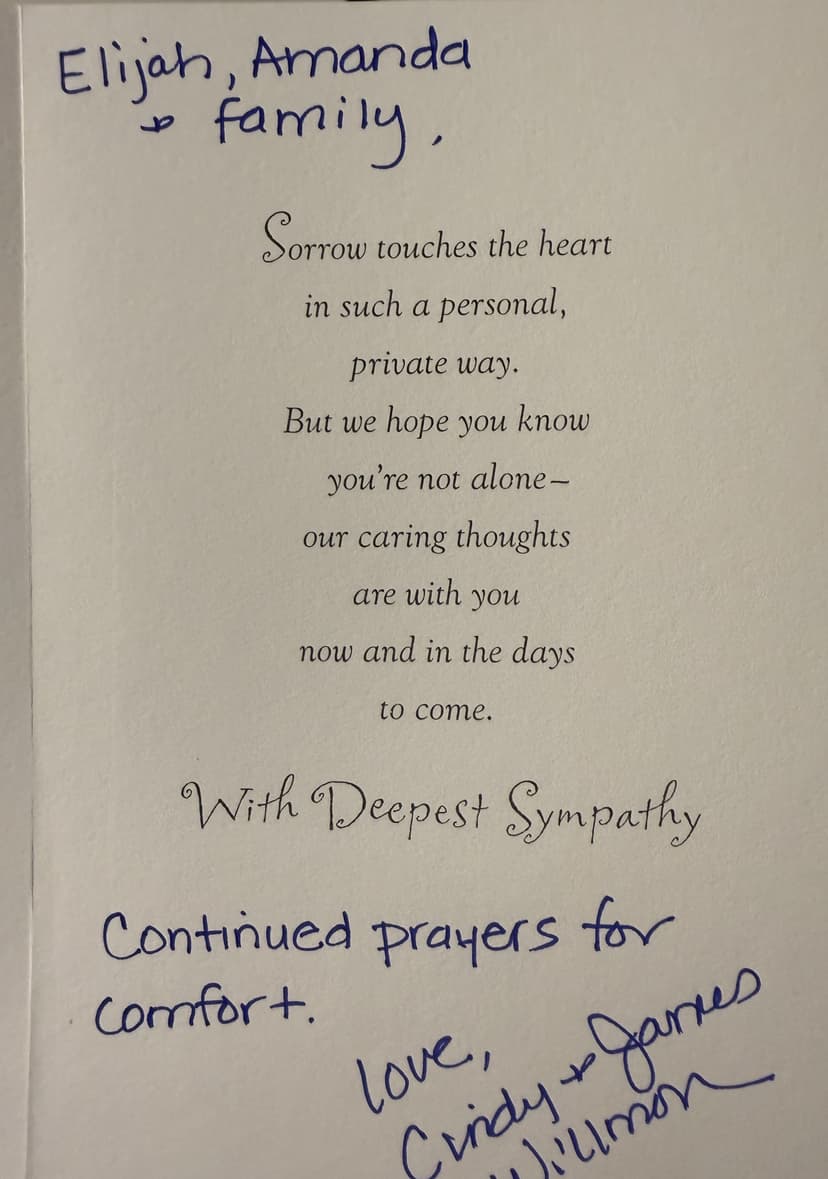 Elijah, Amanda
+ family,
Sorrow touches the heart
in such a personal,
private way.
But we hope you know
you're not alone—
our caring thoughts
are with you
now and in the days
to come.
With Deepest Sympathy
Continued prayers for
comfort.
Love,
Cindy + James
Willmon